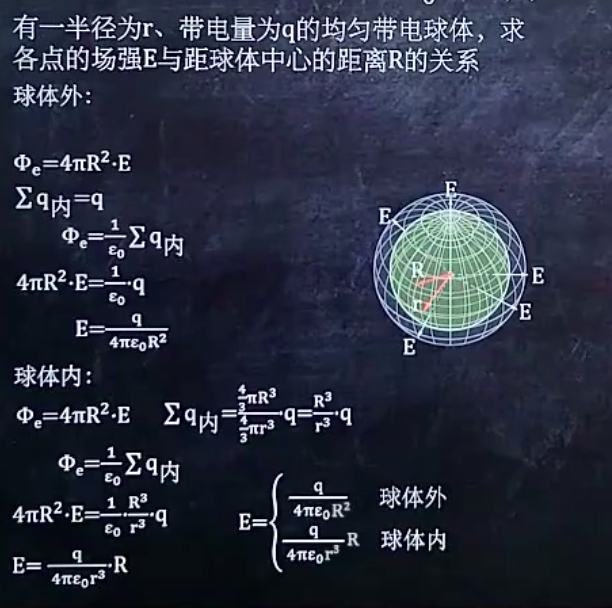 有一半径为r、带电量为q的均匀带电球体，求
各点的场强E与距球体中心的距离R的关系
球体外：
Φₑ=4πR²·E
Σq内=q
Φₑ=1/ε₀ Σq内
4πR²·E=1/ε₀·q
E=q/4πε₀R²
球体内：
Φₑ=4πR²·E Σq内=(4/3 πR³)/(4/3 πr³)·q=R³/r³·q
Φₑ=1/ε₀ Σq内
4πR²·E=1/ε₀·R³/r³·q
E=q/4πε₀r³·R
E={
q/4πε₀R² 球体外
q/4πε₀r³ R 球体内
E
E
R
E
r
E
E